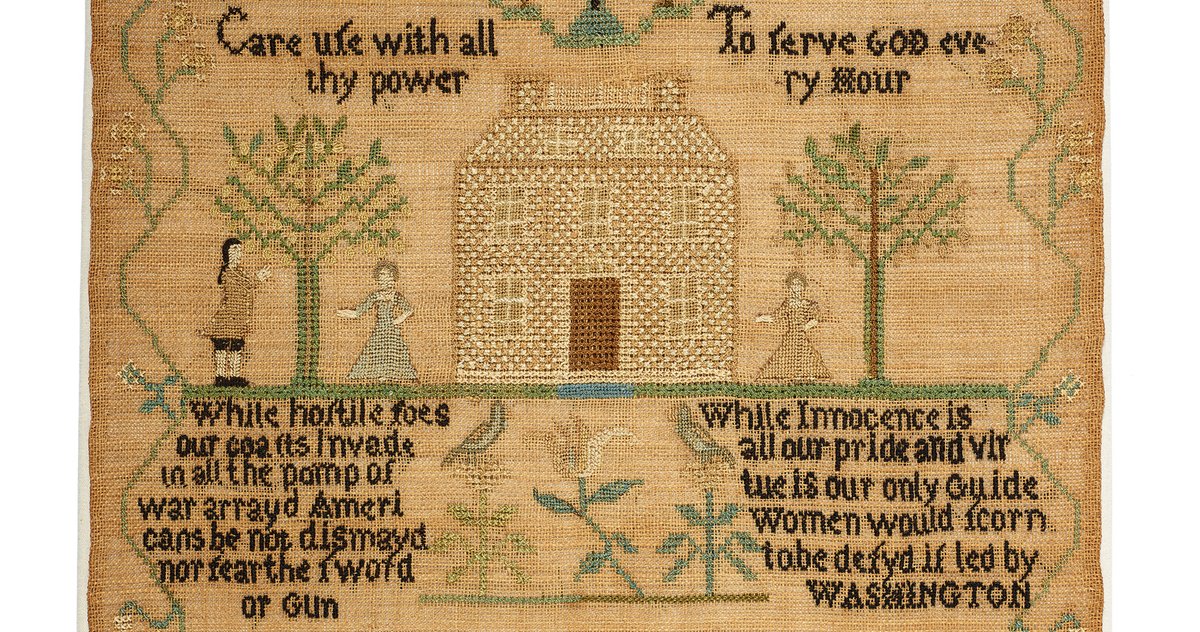 Care uſe with all
thy power
To ſerve GOD eve
ry Hour
While hoſtile foes
our coaſts Invade
in all the pomp of
war arrayd Ameri
cans be not diſmayd
nor fear the ſword
or Gun
While Innocence is
all our pride and vir
tue is our only Guide
Women would ſcorn
to be defyd if led by
WASHINGTON